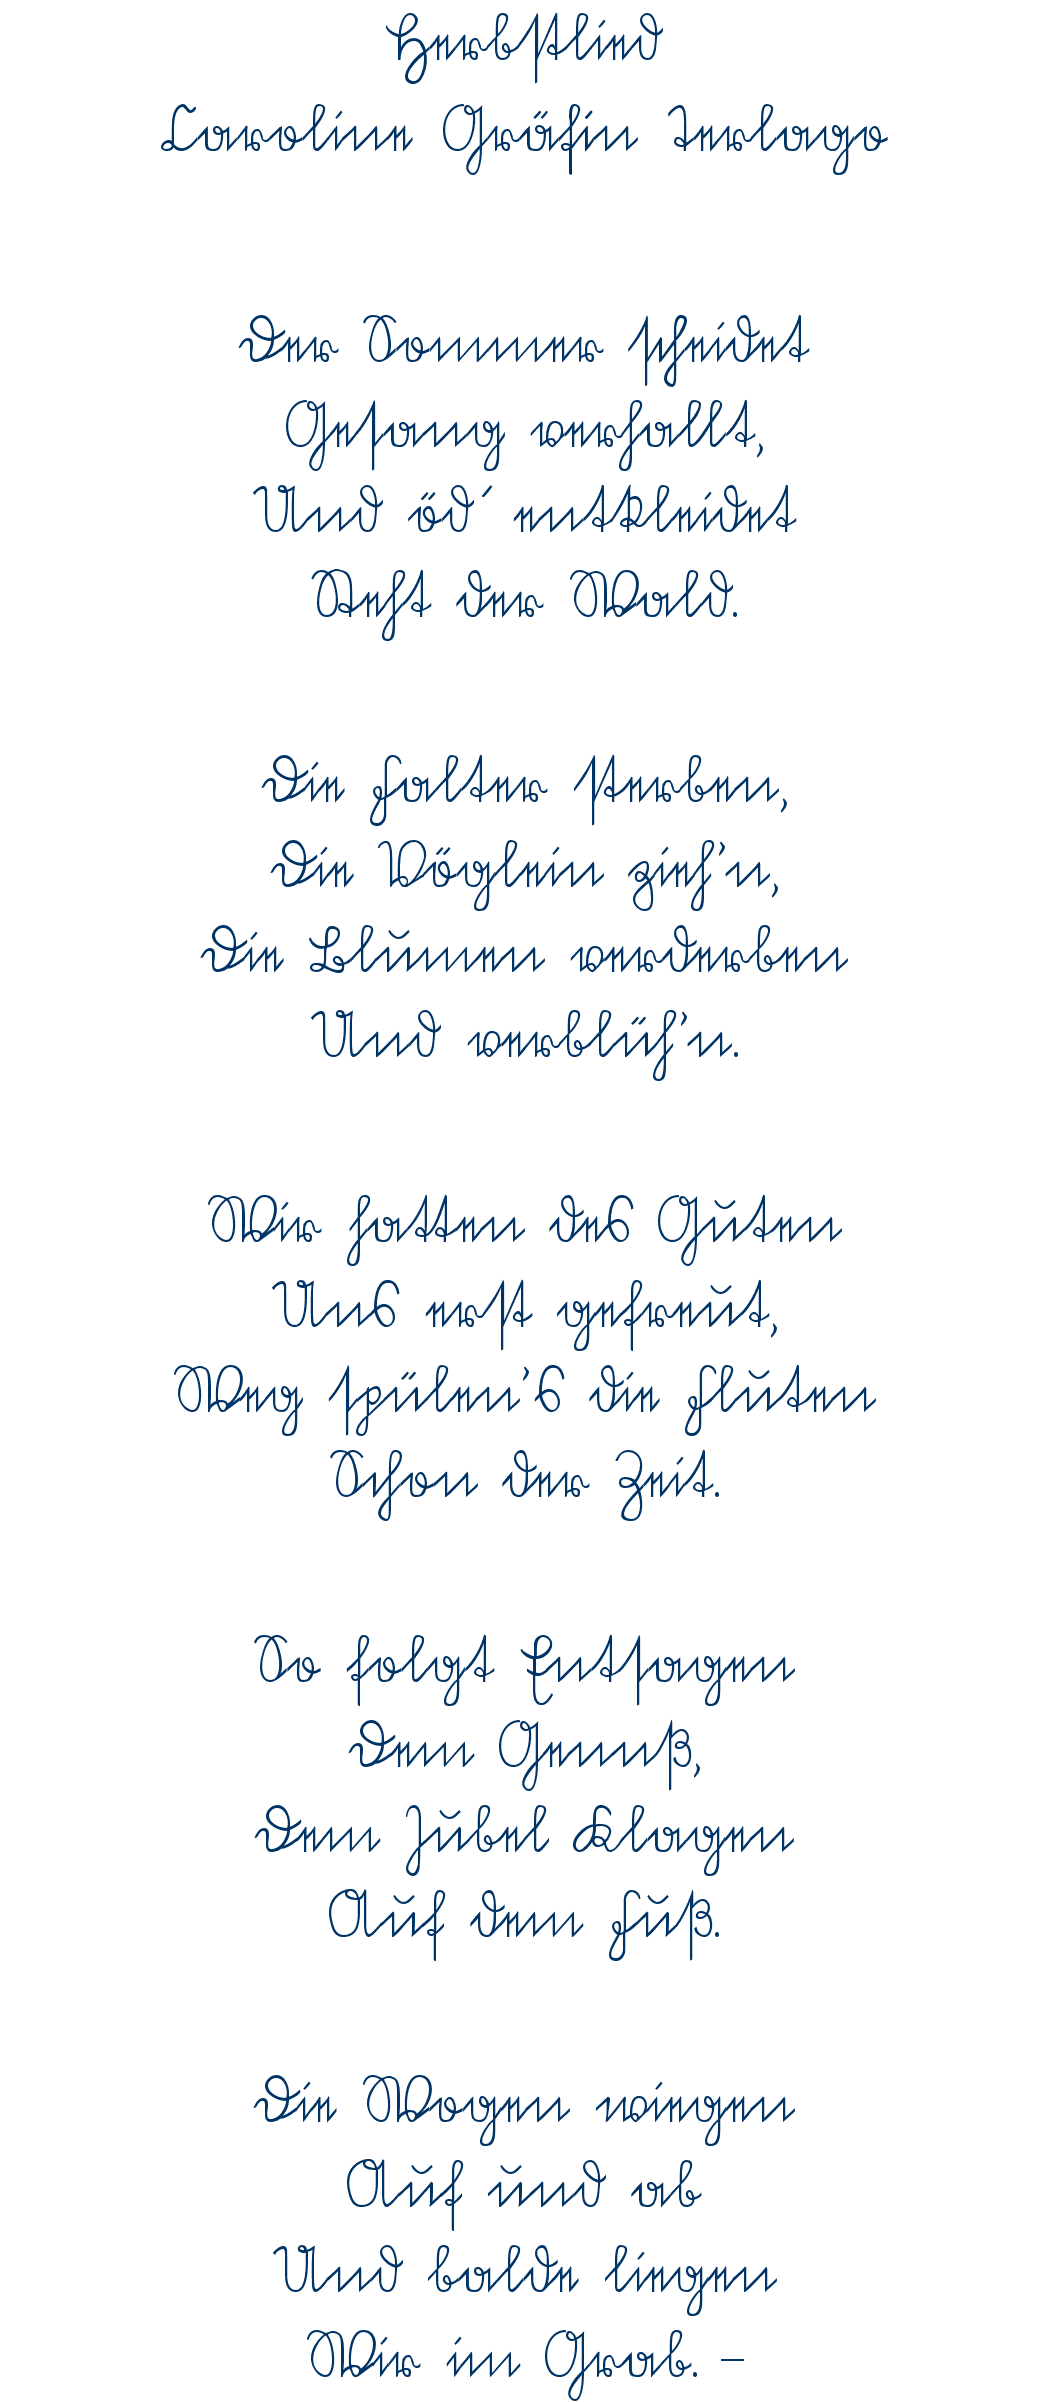 Herbstlied
Caroline Gräfin Terlago
Der Sommer scheidet
Gesang verhallt,
Und öd´ entkleidet
Steht der Wald.
Die Falter sterben,
Die Vöglein zieh'n,
Die Blumen verderben
Und verblüh'n.
Wir hatten des Guten
Uns erst gefreut,
Weg spülen's die Fluten
Schon der Zeit.
So folgt Entsagen
Dem Genuß,
Dem Jubel Klagen
Auf dem Fuß.
Die Wogen wiegen
Auf und ab
Und balde liegen
Wir im Grab. –